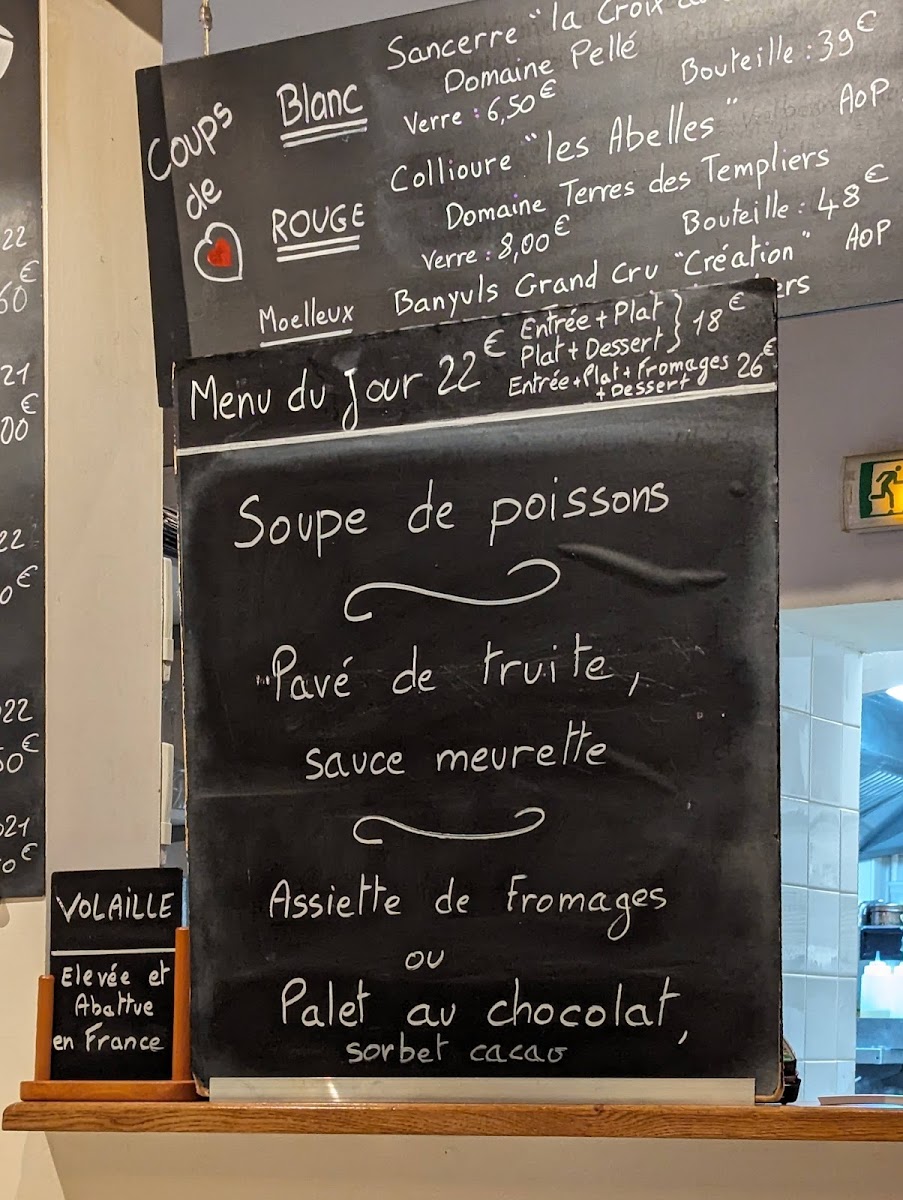 Coups
de
Blanc
Sancerre "la Croix
Domaine Pellé
Verre : 6,50€
Bouteille : 39€
ROUGE
Collioure "les Abelles"
AoP
Domaine Terres des Templiers
Verre : 8,00€
Bouteille : 48€
Moelleux
Banyuls Grand Cru "Création"
AoP
Menu du jour 22€
Entrée + Plat } 18€
Plat + Dessert
Entrée + Plat + Fromages 26€
+ Dessert
Soupe de poissons
Pavé de truite,
sauce meurette
Assiette de Fromages
ou
Palet au chocolat,
sorbet cacao
VOLAILLE
Elevée et
Abattue
en France
22
21
22
22